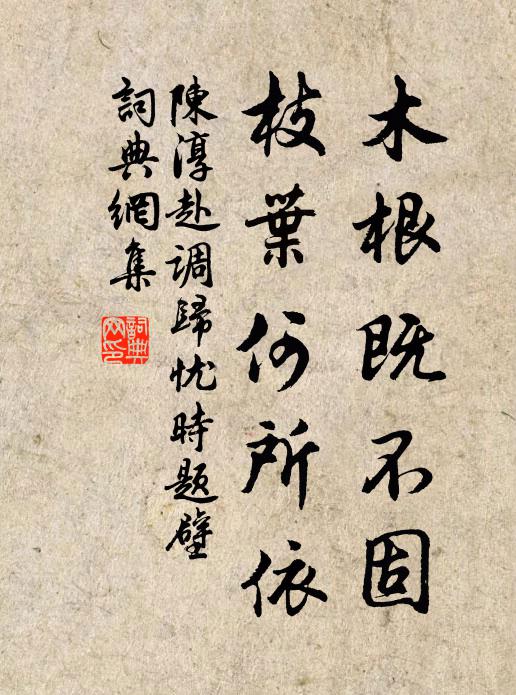 木根既不固
枝葉何所依
陳淳赴調歸忱時題壁
詞典網集
詞典網印